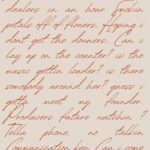 dealers in an hour Smokin
petals off of flowers. Hyping i
dont get the downers. Can i
lay up on the counter? is the
music gettin louder? is there
somebody around her? guess i
gotta meet my founder.
Producers future nothin?
Tella phone, no talkin
Communication key. Can i come